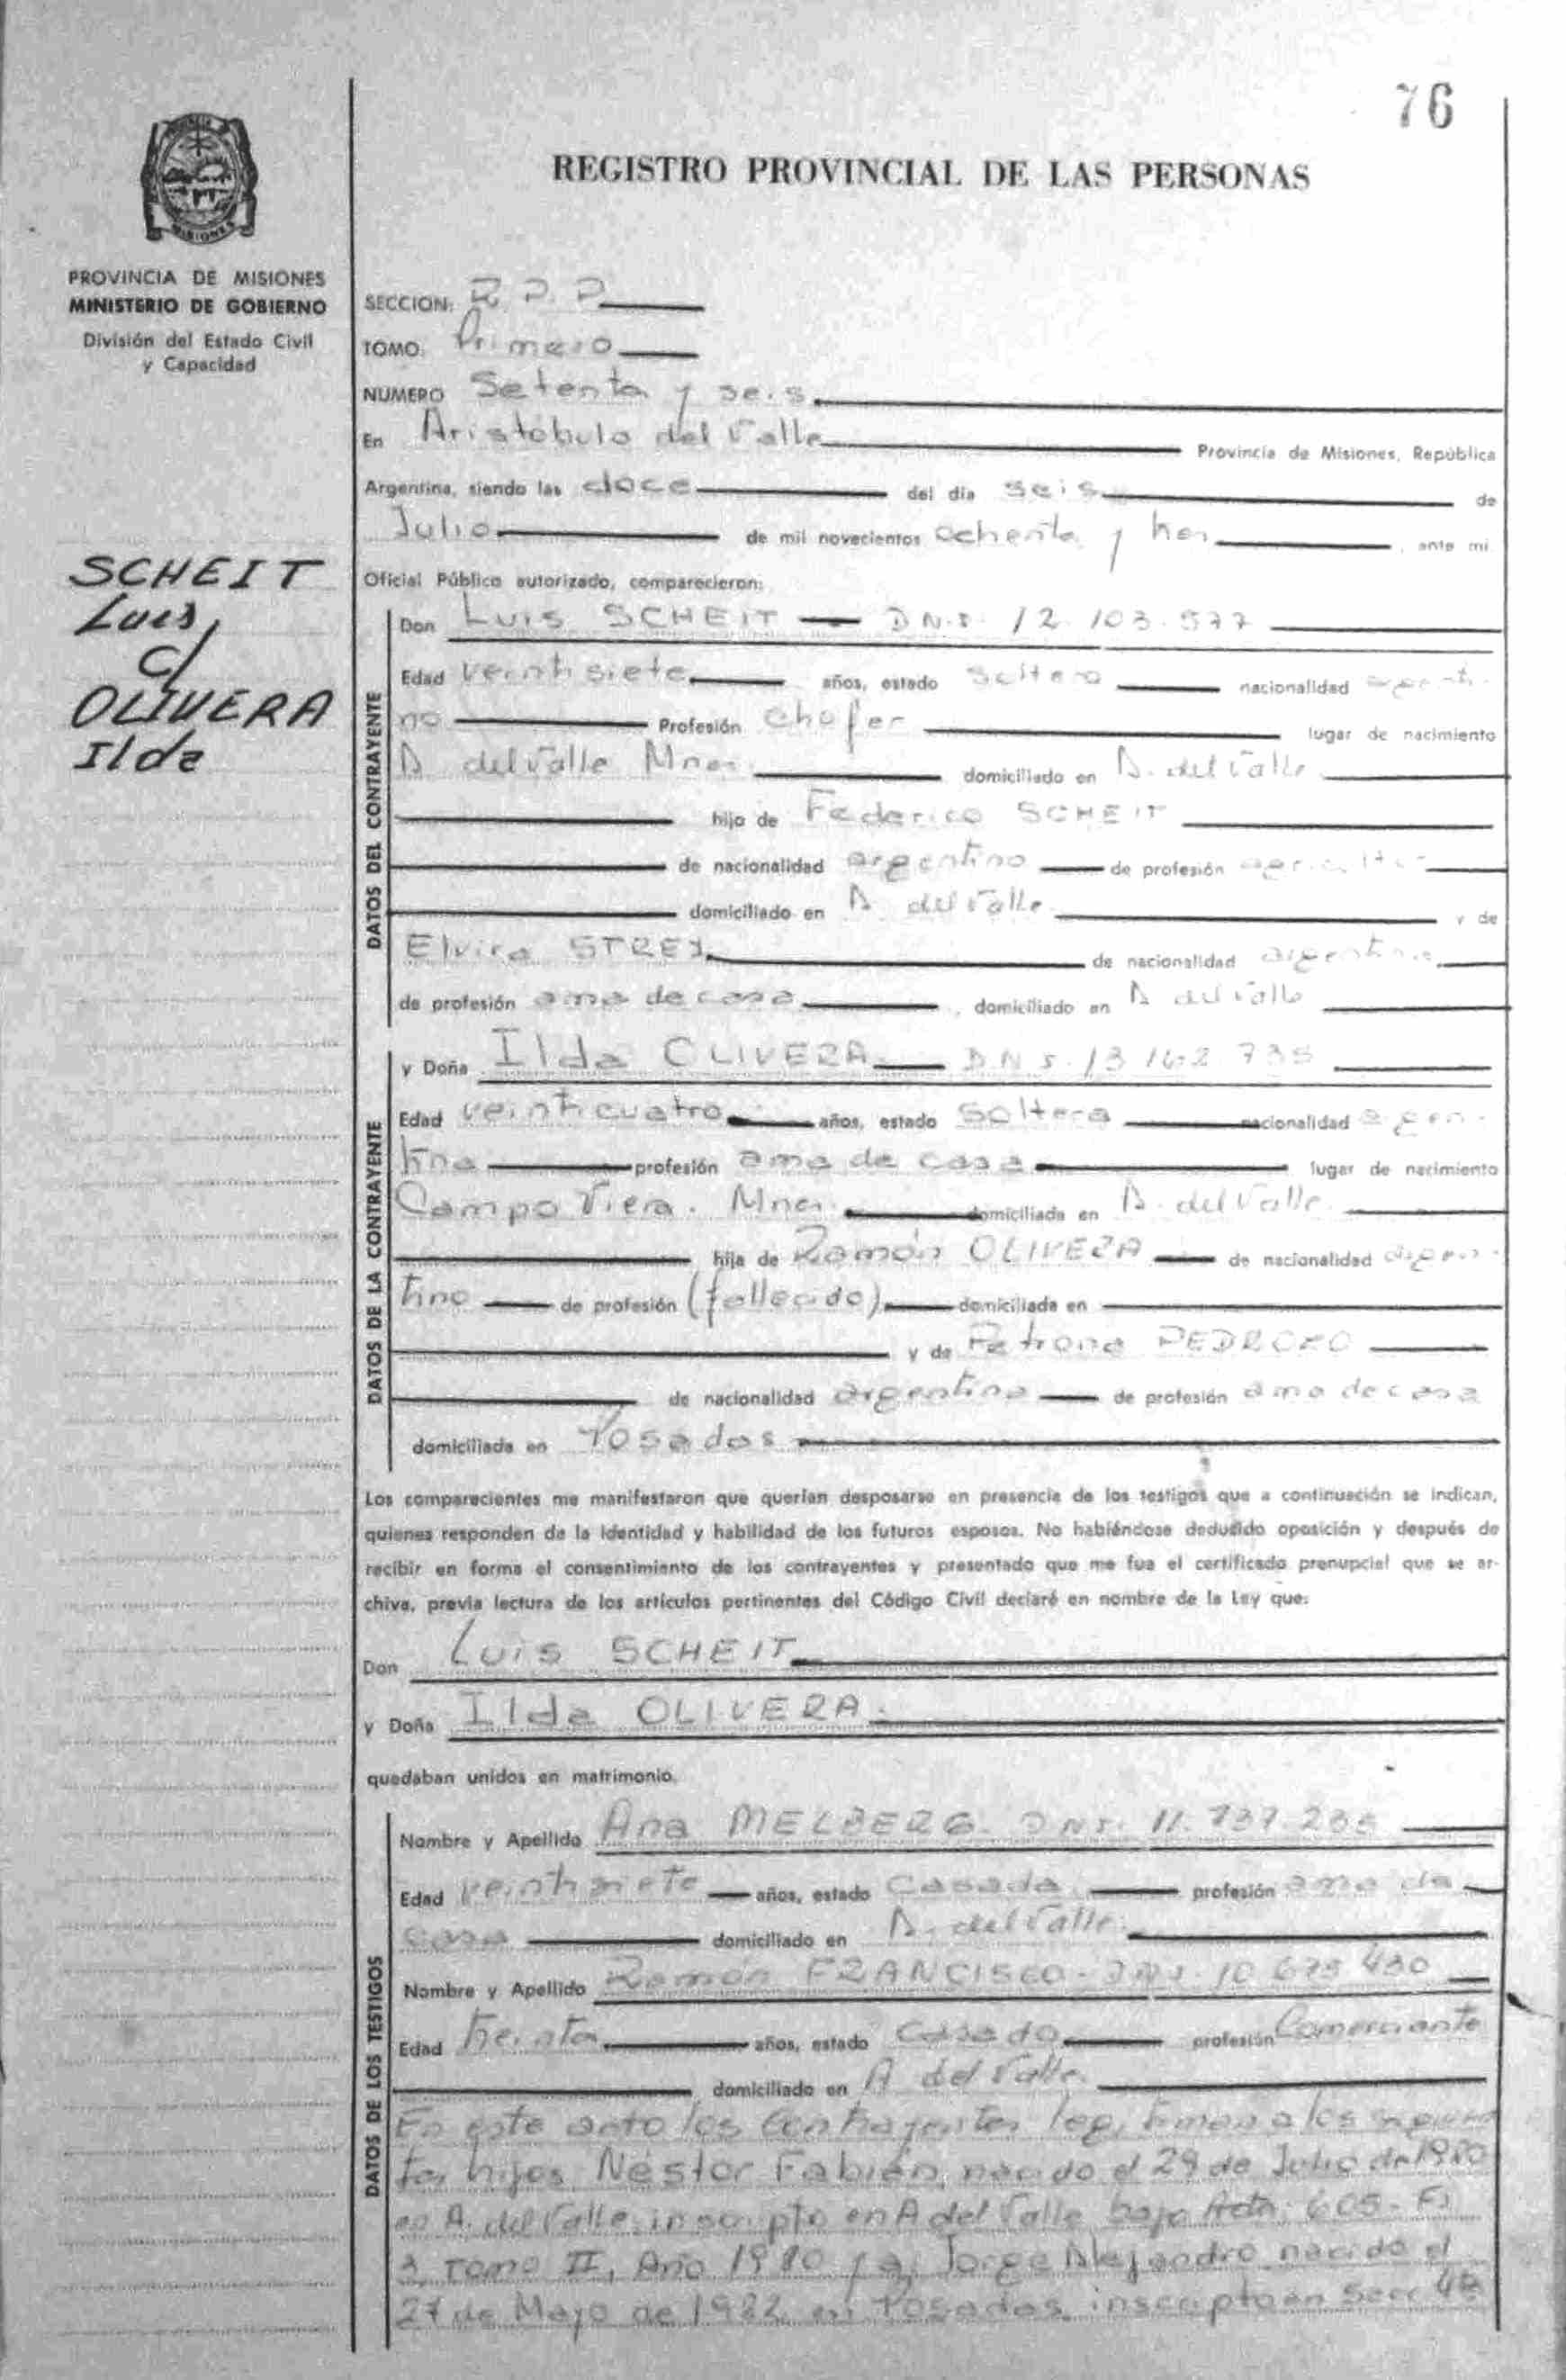 76
REGISTRO PROVINCIAL DE LAS PERSONAS
MISIONES
PROVINCIA DE MISIONES
MINISTERIO DE GOBIERNO
División del Estado Civil
y Capacidad
SCHEIT
Luis
c/
OLIVERA
Ilda
SECCION: R. P. P
TOMO: Primero
NUMERO Setenta y seis
En Aristóbulo del Valle Provincia de Misiones, República
Argentina, siendo las doce del día seis de
Julio de mil novecientos ochenta y tres, ante mí
Oficial Público autorizado, comparecieron:
DATOS DEL CONTRAYENTE
Don Luis SCHEIT D.N.I. 12.103.577
Edad veintisiete años, estado soltero nacionalidad argenti-
no Profesión chofer lugar de nacimiento
A. del Valle Mnes. domiciliado en A. del Valle
hijo de Federico SCHEIT
de nacionalidad argentino de profesión agricultor
domiciliado en A. del Valle y de
Elvira STREY de nacionalidad argentina
de profesión ama de casa, domiciliado en A. del Valle
DATOS DE LA CONTRAYENTE
y Doña Ilda OLIVERA D.N.I. 13.162.735
Edad veinticuatro años, estado soltera nacionalidad argen-
tina profesión ama de casa lugar de nacimiento
Campo Viera. Mnes. domiciliada en A. del Valle
hija de Ramón OLIVERA de nacionalidad argen-
tino de profesión (fallecido) domiciliada en
y de Petrona PEDROZO
de nacionalidad argentina de profesión ama de casa
domiciliada en Posadas
Los comparecientes me manifestaron que querían desposarse en presencia de los testigos que a continuación se indican,
quienes responden de la identidad y habilidad de los futuros esposos. No habiéndose deducido oposición y después de
recibir en forma el consentimiento de los contrayentes y presentado que me fue el certificado prenupcial que se ar-
chiva, previa lectura de los artículos pertinentes del Código Civil declaré en nombre de la Ley que:
Don Luis SCHEIT
y Doña Ilda OLIVERA
quedaban unidos en matrimonio.
DATOS DE LOS TESTIGOS
Nombre y Apellido Ana MELBERG. D.N.I. 11.737.235
Edad veintisiete años, estado Casada profesión ama de
casa domiciliado en A. del Valle
Nombre y Apellido Ramón FRANCISCO - D.N.I. 10.675.430
Edad treinta años, estado Casado profesión Comerciante
domiciliado en A. del Valle
En este acto los contrayentes legitiman a los siguien
tes hijos Néstor Fabián, nacido el 29 de Julio de 1980
en A. del Valle, inscripto en A del Valle bajo Acta 605- Fs
3, Tomo II, Año 1980 y a; Jorge Alejandro nacido el
27 de Mayo de 1982 en Posadas, inscripto en Secc 4ta